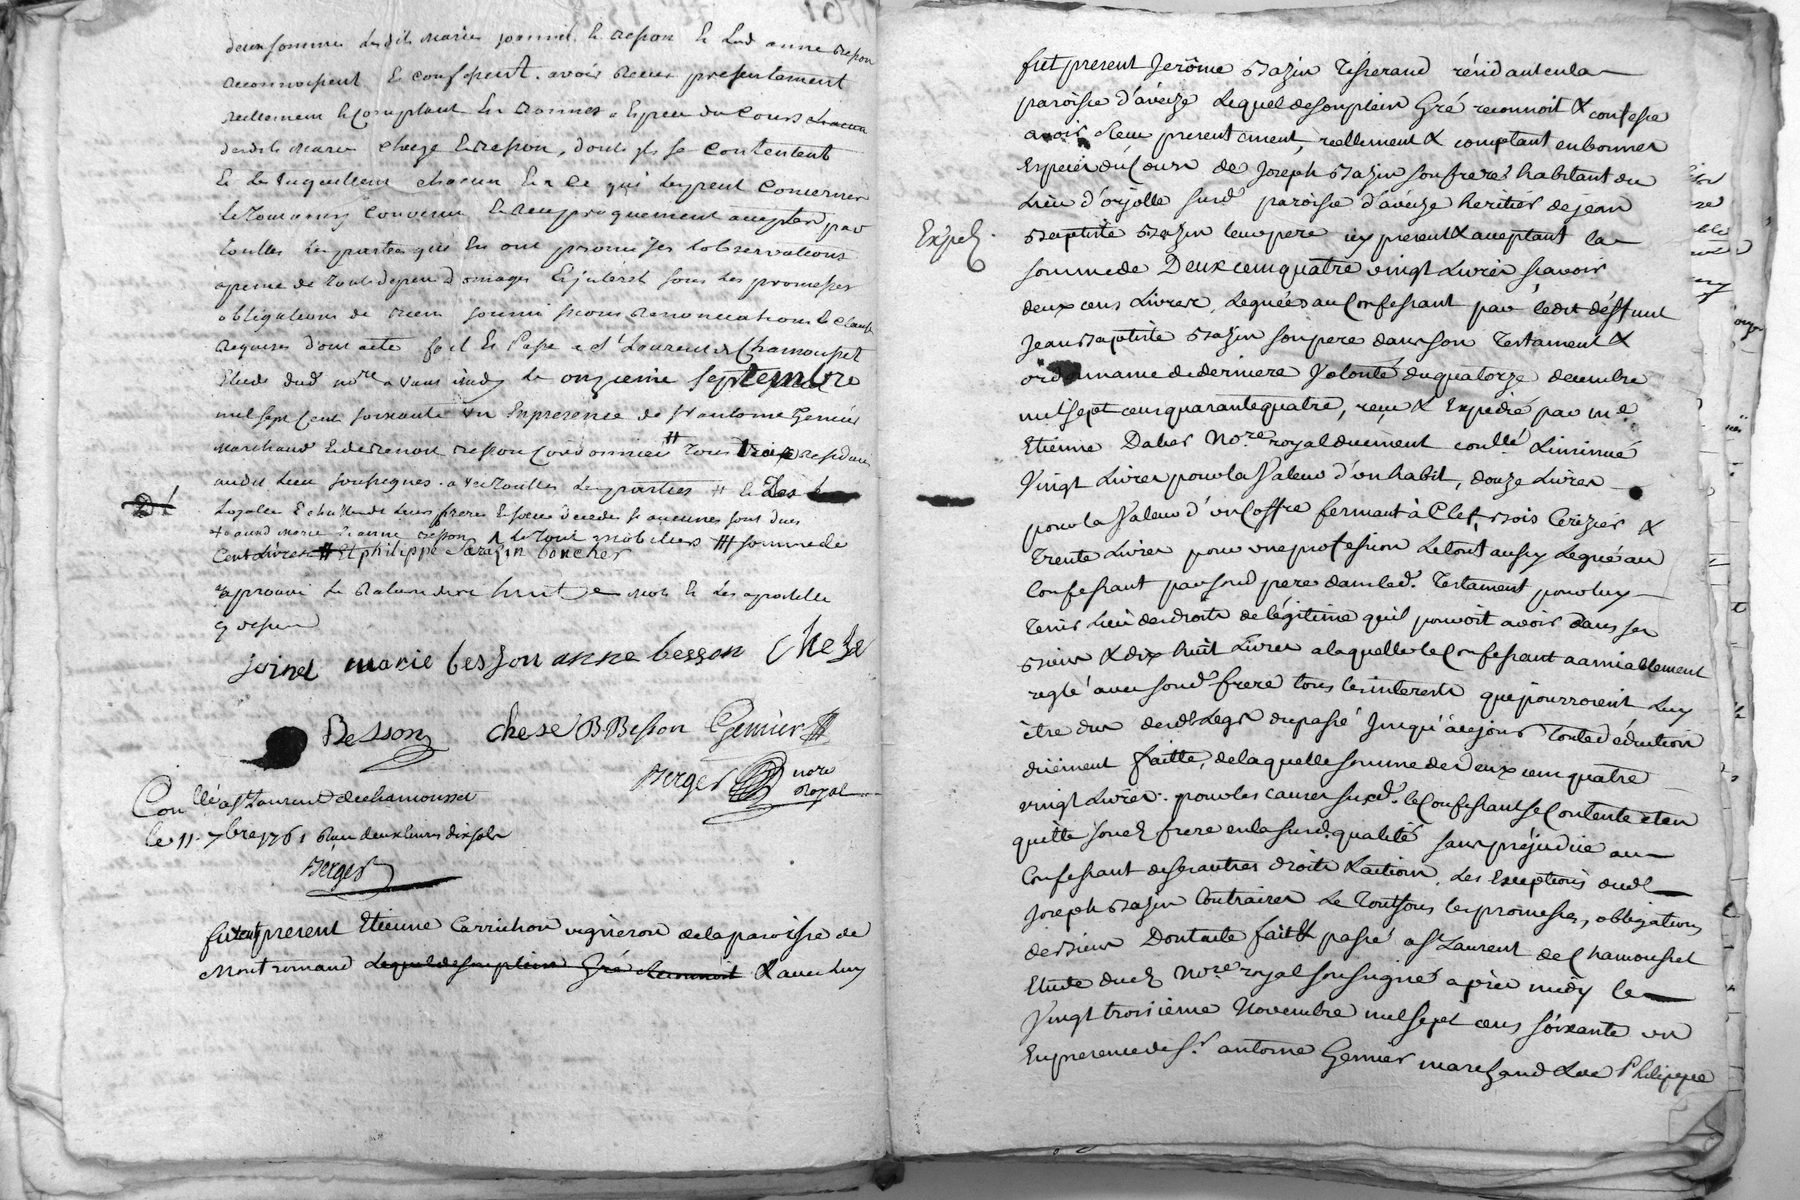 deux sommes lesdits mariés joannel le Besson et lad anne Besson
reconnoissent et confessent avoir Receu presentement
reellement et comptant En Bonnes Especes du Cours chacun
desdits mariés cheze et Besson, dont ils se Contentent
Et En quittent chacun En ce qui les peut Concerner
Convenu et reciproquement accepter par
touttes Les parties qui En ont promises Lobservations
a peine de touts depens domages Et jnterest sous Les promesses
obligations de Biens soumissions Renonciations Et Clauses
Requises dont acte fait Et Passé a St Laurent de Chamousset
Etude dud nore avant midy Le onzieme septembre
mil sept Cent soixante un En presence de Sr antoine Genier
marchand Et de Benoit Besson Cordonnier # tous trois residants
audit Lieu soussignés avec touttes Les parties # et Les
Legales Echutte de Leurs freres Et soeur decedés si aucunes sont dues
auxd mariés et anne Besson le tout mobiliers ## somme de
Cent Livres # Et philippe Sarazin boucher
approuvé La Rature de huit mots Et Les apostilles
cy dessus
joinel marie besson anne besson CheZe
Besson chese B Besson Genier
Berger nore Royal
Conllé a St Laurent de chamousset
le 11 7bre 1761 Reçu deux livres dix sols
Berger
furent present Etienne Carrichon vigneron de la paroisse de
Montromand Lequel de son plein Gré Reconnoit & avec luy
fut present Jerôme Bazin Tisserand résidant en la
paroisse d'aveize Lequel de son plein Gré reconnoit & confesse
avoir Receu presentement, réellement & comptant en bonnes
Especes du Cours de Joseph Bazin son frere habitant du
Lieu d'orjolle surd paroisse d'aveize heritier de jean
Expéd.
Baptiste Bazin leur pere icy present & acceptant la
somme de Deux cens quatre vingt Livres sçavoir
deux cens Livres, Leguées au Confessant par ledit déffunt
Jean Baptiste Bazin son pere dans son Testament &
ordonnance de derniere Volonté du quatorze decembre
mil sept cens quarante quatre, reçu & Expedié par me
Etienne Dalier Nore royal duement conllé & insinué
Vingt Livres pour la Valeur d'un habit, douze Livres
pour la Valeur d'un Coffre fermant à Clef, Bois Cerizier &
Trente Livres pour une profession Le tout aussy Legué au
Confessant par sond pere dans led. Testament pour luy
tenir Lieu des droits de légitime quil pouvoit avoir dans ses
Biens & dix huit Livres a laquelle le Confessant a amiablement
reglé avec sond frere tous les interests que pourroient luy
être dus desds Legs du passé Jusqu'à ce jour Toute déduction
duëment faitte, de laquelle somme de deux cens quatre
vingt Livres pour les causes susd. le Confessant se Contente et en
quitte sond frere en la susd. qualité sans préjudice au
Confessant de ses autres droits & actions. Les Exceptions dudt
Joseph Bazin Contraires Le Tout sous les promesses, obligations
de Biens Dont acte fait & passé a St Laurent de Chamousset
Etude dudt Nore royal soussigné après midy le
Vingt troisieme Novembre mil sept cens soixante un
En presence de Sr. antoine Genier marchand & de Philippe